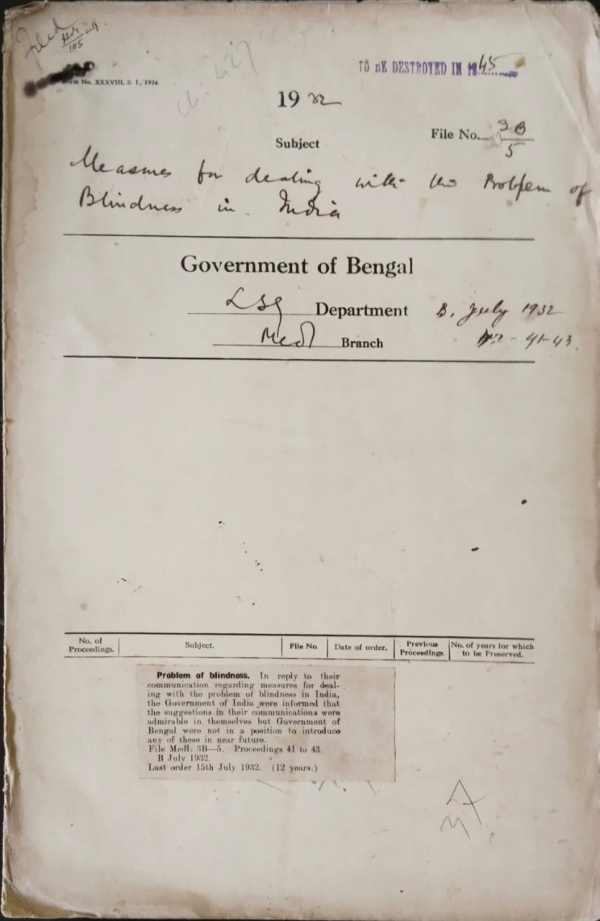 Filed
TO BE DESTROYED IN 1945
Form No. XXXVIII, S. I., 1924.
1932
Subject
File No. 3B/5
Measures for dealing with the Problem of
Blindness in India
Government of Bengal
LSG Department B. July 1932
Medl Branch 41-43
No. of Proceedings. Subject. File No. Date of order. Previous Proceedings. No. of years for which to be Preserved.
Problem of blindness. In reply to their
communication regarding measures for deal-
ing with the problem of blindness in India,
the Government of India were informed that
the suggestions in their communications were
admirable in themselves but Government of
Bengal were not in a position to introduce
any of these in near future.
File Medl. 3B—5. Proceedings 41 to 43.
B July 1932.
Last order 15th July 1932. (12 years.)